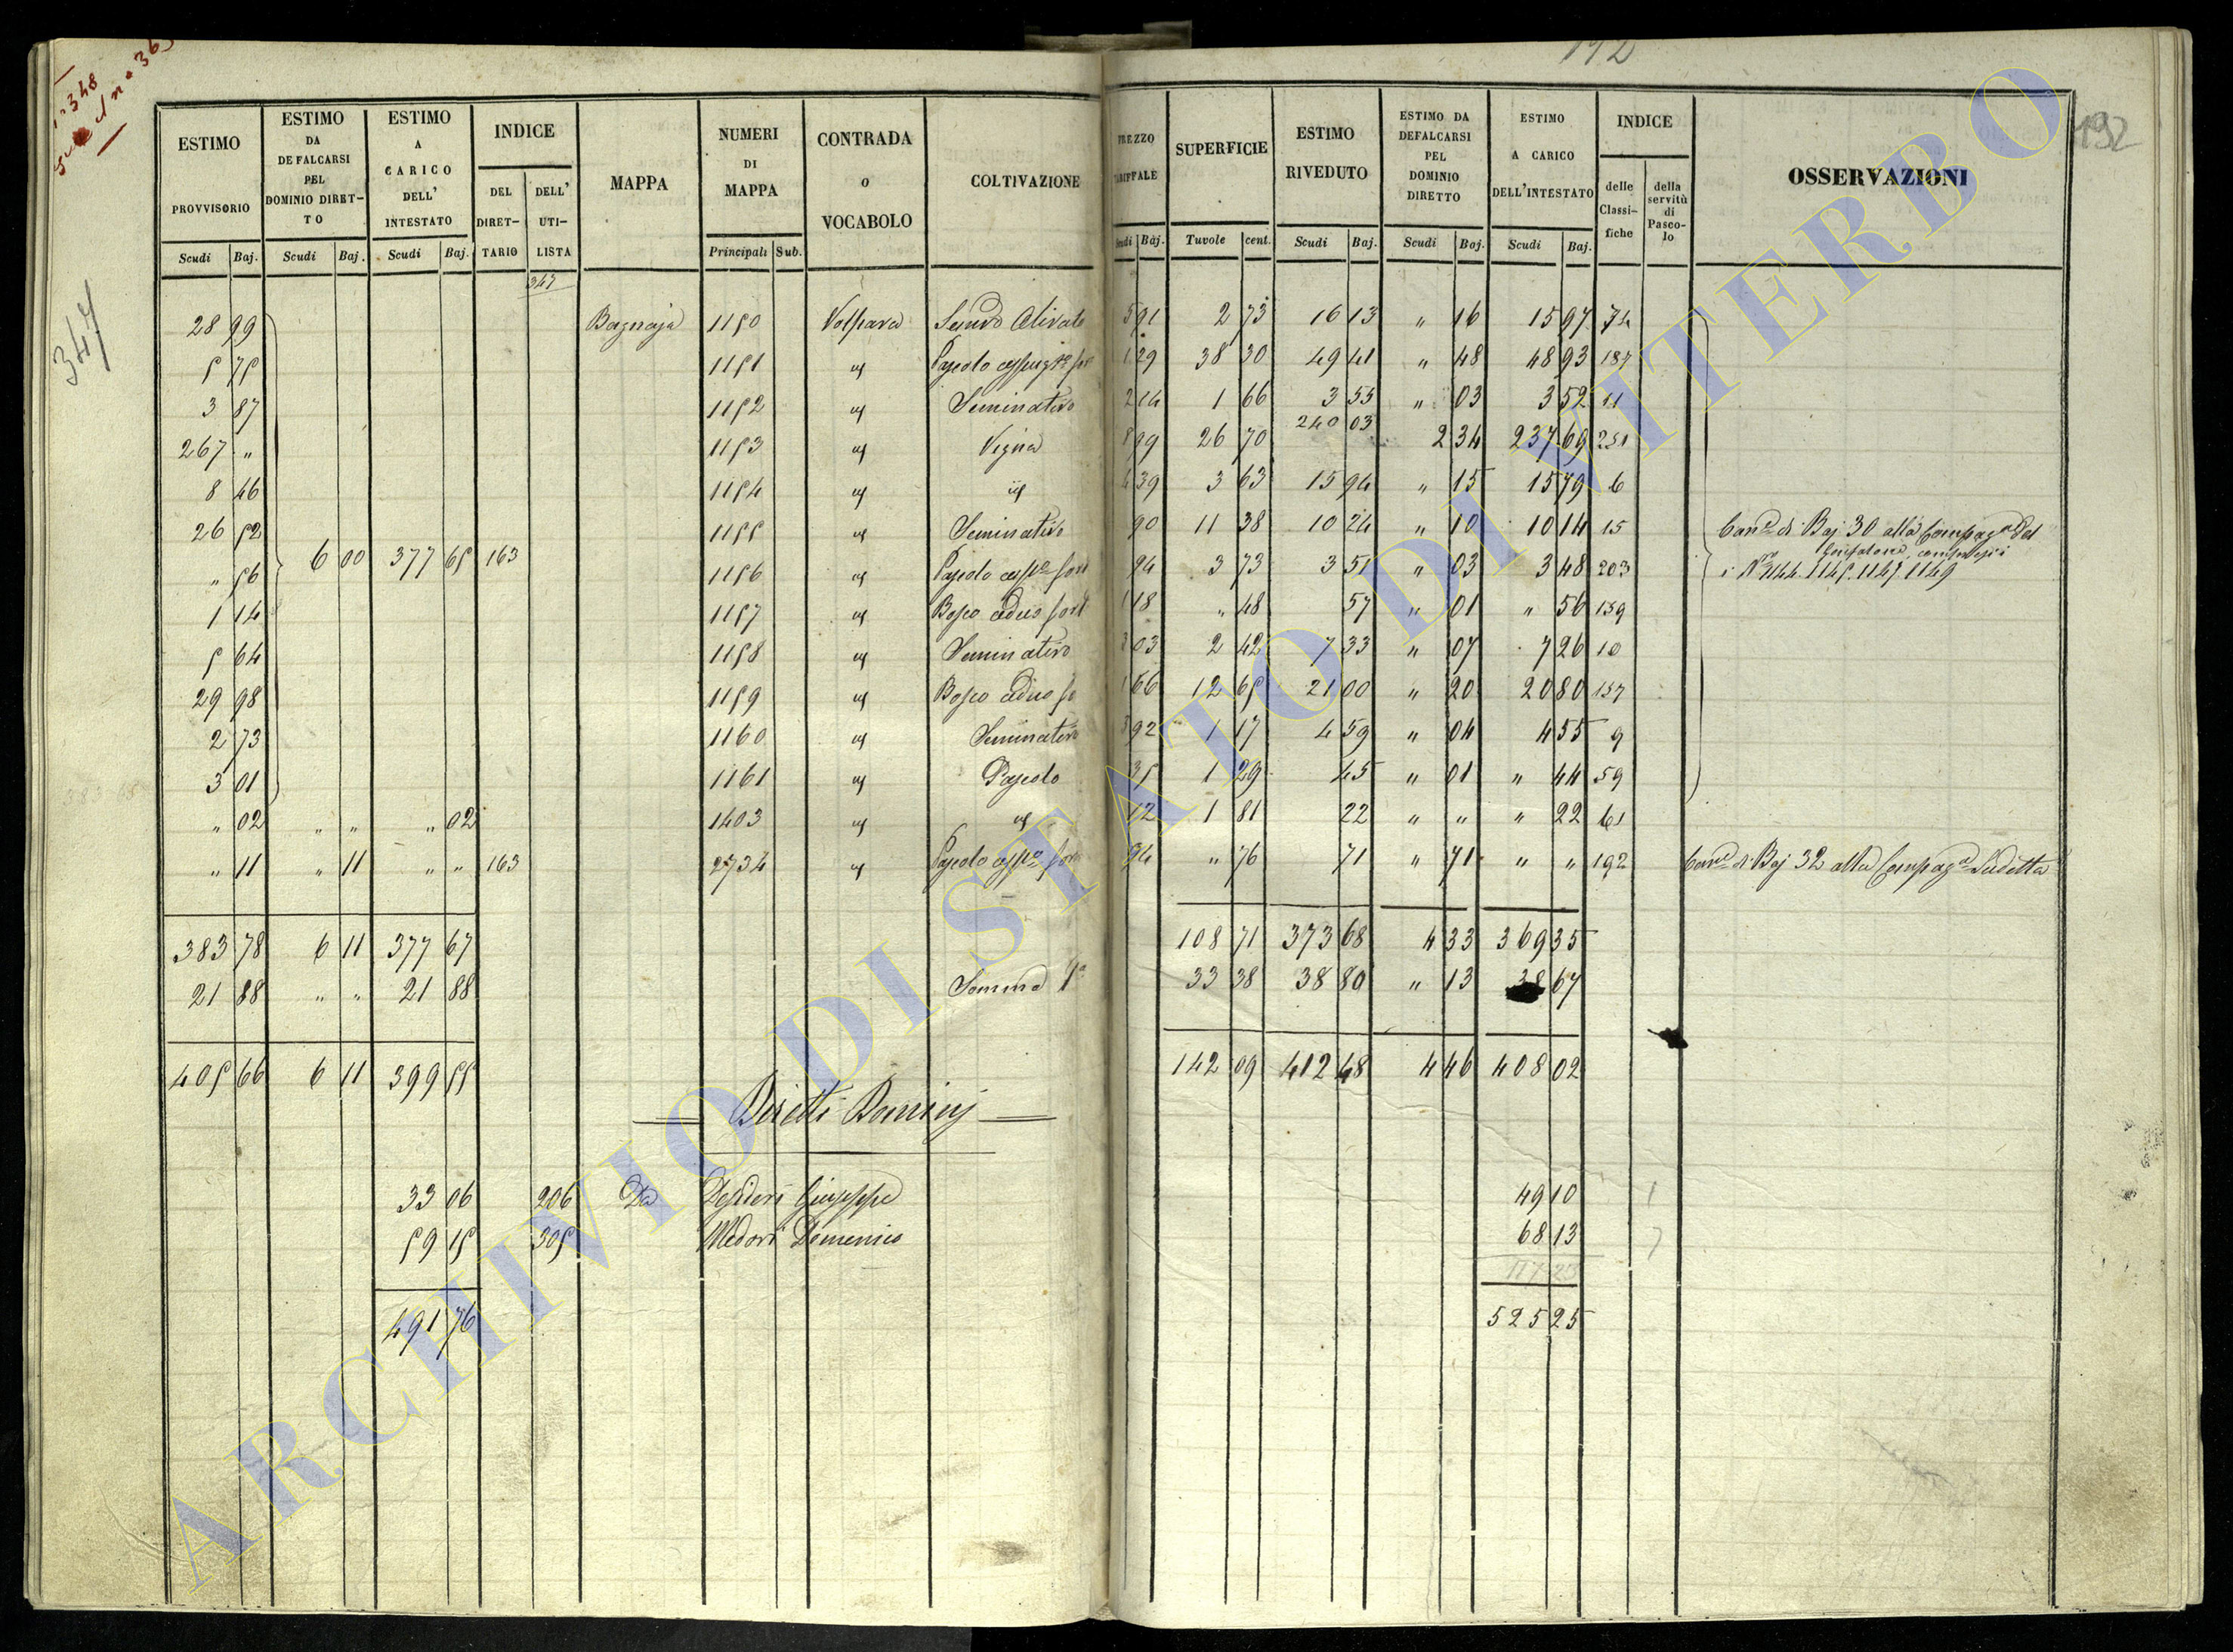 192
192
347
ESTIMO PROVVISORIO
ESTIMO DA DEFALCARSI PEL DOMINIO DIRETTO
ESTIMO A CARICO DELL' INTESTATO
INDICE
DEL DIRETTARIO
DELL' UTILISTA
MAPPA
NUMERI DI MAPPA
CONTRADA O VOCABOLO
COLTIVAZIONE
PREZZO TARIFFALE
SUPERFICIE
ESTIMO RIVEDUTO
ESTIMO DA DEFALCARSI PEL DOMINIO DIRETTO
ESTIMO A CARICO DELL'INTESTATO
INDICE
delle Classifiche
della servitù di Pascolo
OSSERVAZIONI
Scudi Baj. Scudi Baj. Scudi Baj. Principali Sub. Scudi Baj. Tavole cent. Scudi Baj. Scudi Baj. Scudi Baj.
347
28 99 Bagnaja 1150 Volpara Semvo Olivato 5 91 2 73 16 13 " 16 15 97 74
5 75 1151 id 1 29 38 30 49 41 " 48 48 93 187
3 87 1152 id Seminativo 2 14 1 66 3 55 " 03 3 52 11
267 " 1153 id Vigna 8 99 26 70 240 03 2 34 237 69 251
8 46 1154 id id 4 39 3 63 15 94 " 15 15 79 6
26 52 1155 id Seminativo 90 11 38 10 24 " 10 10 14 15
Canе di Baj 30 alla Compagа del
Gonfalone, compresi
i Nri 1144. 1145. 1147. 1149
6 00 377 65 163
" 56 1156 id Pascolo cespо fort 94 3 73 3 51 " 03 3 48 203
1 14 1157 id Bosco ceduo fort 1 18 " 48 57 " 01 " 56 159
5 64 1158 id Seminativo 3 03 2 42 7 33 " 07 7 26 10
29 98 1159 id Bosco ceduo fo 1 66 12 65 21 00 " 20 20 80 157
2 73 1160 id Seminativo 3 92 1 17 4 59 " 04 4 55 9
3 01 1161 id Pascolo 35 1 29 45 " 01 " 44 59
" 02 " " " 02 1403 id id 12 1 81 22 " " " 22 61
" 11 " 11 " " 163 2734 id Pascolo cespо fort 94 " 76 71 " 71 " " 192 Canе di Baj 32 alla Compagа Sudetta
383 78 6 11 377 67 108 71 373 68 4 33 369 35
21 88 " " 21 88 Somma 1a 33 38 38 80 " 13 38 67
405 66 6 11 399 55 142 09 412 48 4 46 408 02
Diretti Dominj
33 06 206 Da Desideri Giuseppe 49 10
59 15 305 Medori Domenico 68 13
117 23
491 76 525 25
ARCHIVIO DI STATO DI VITERBO